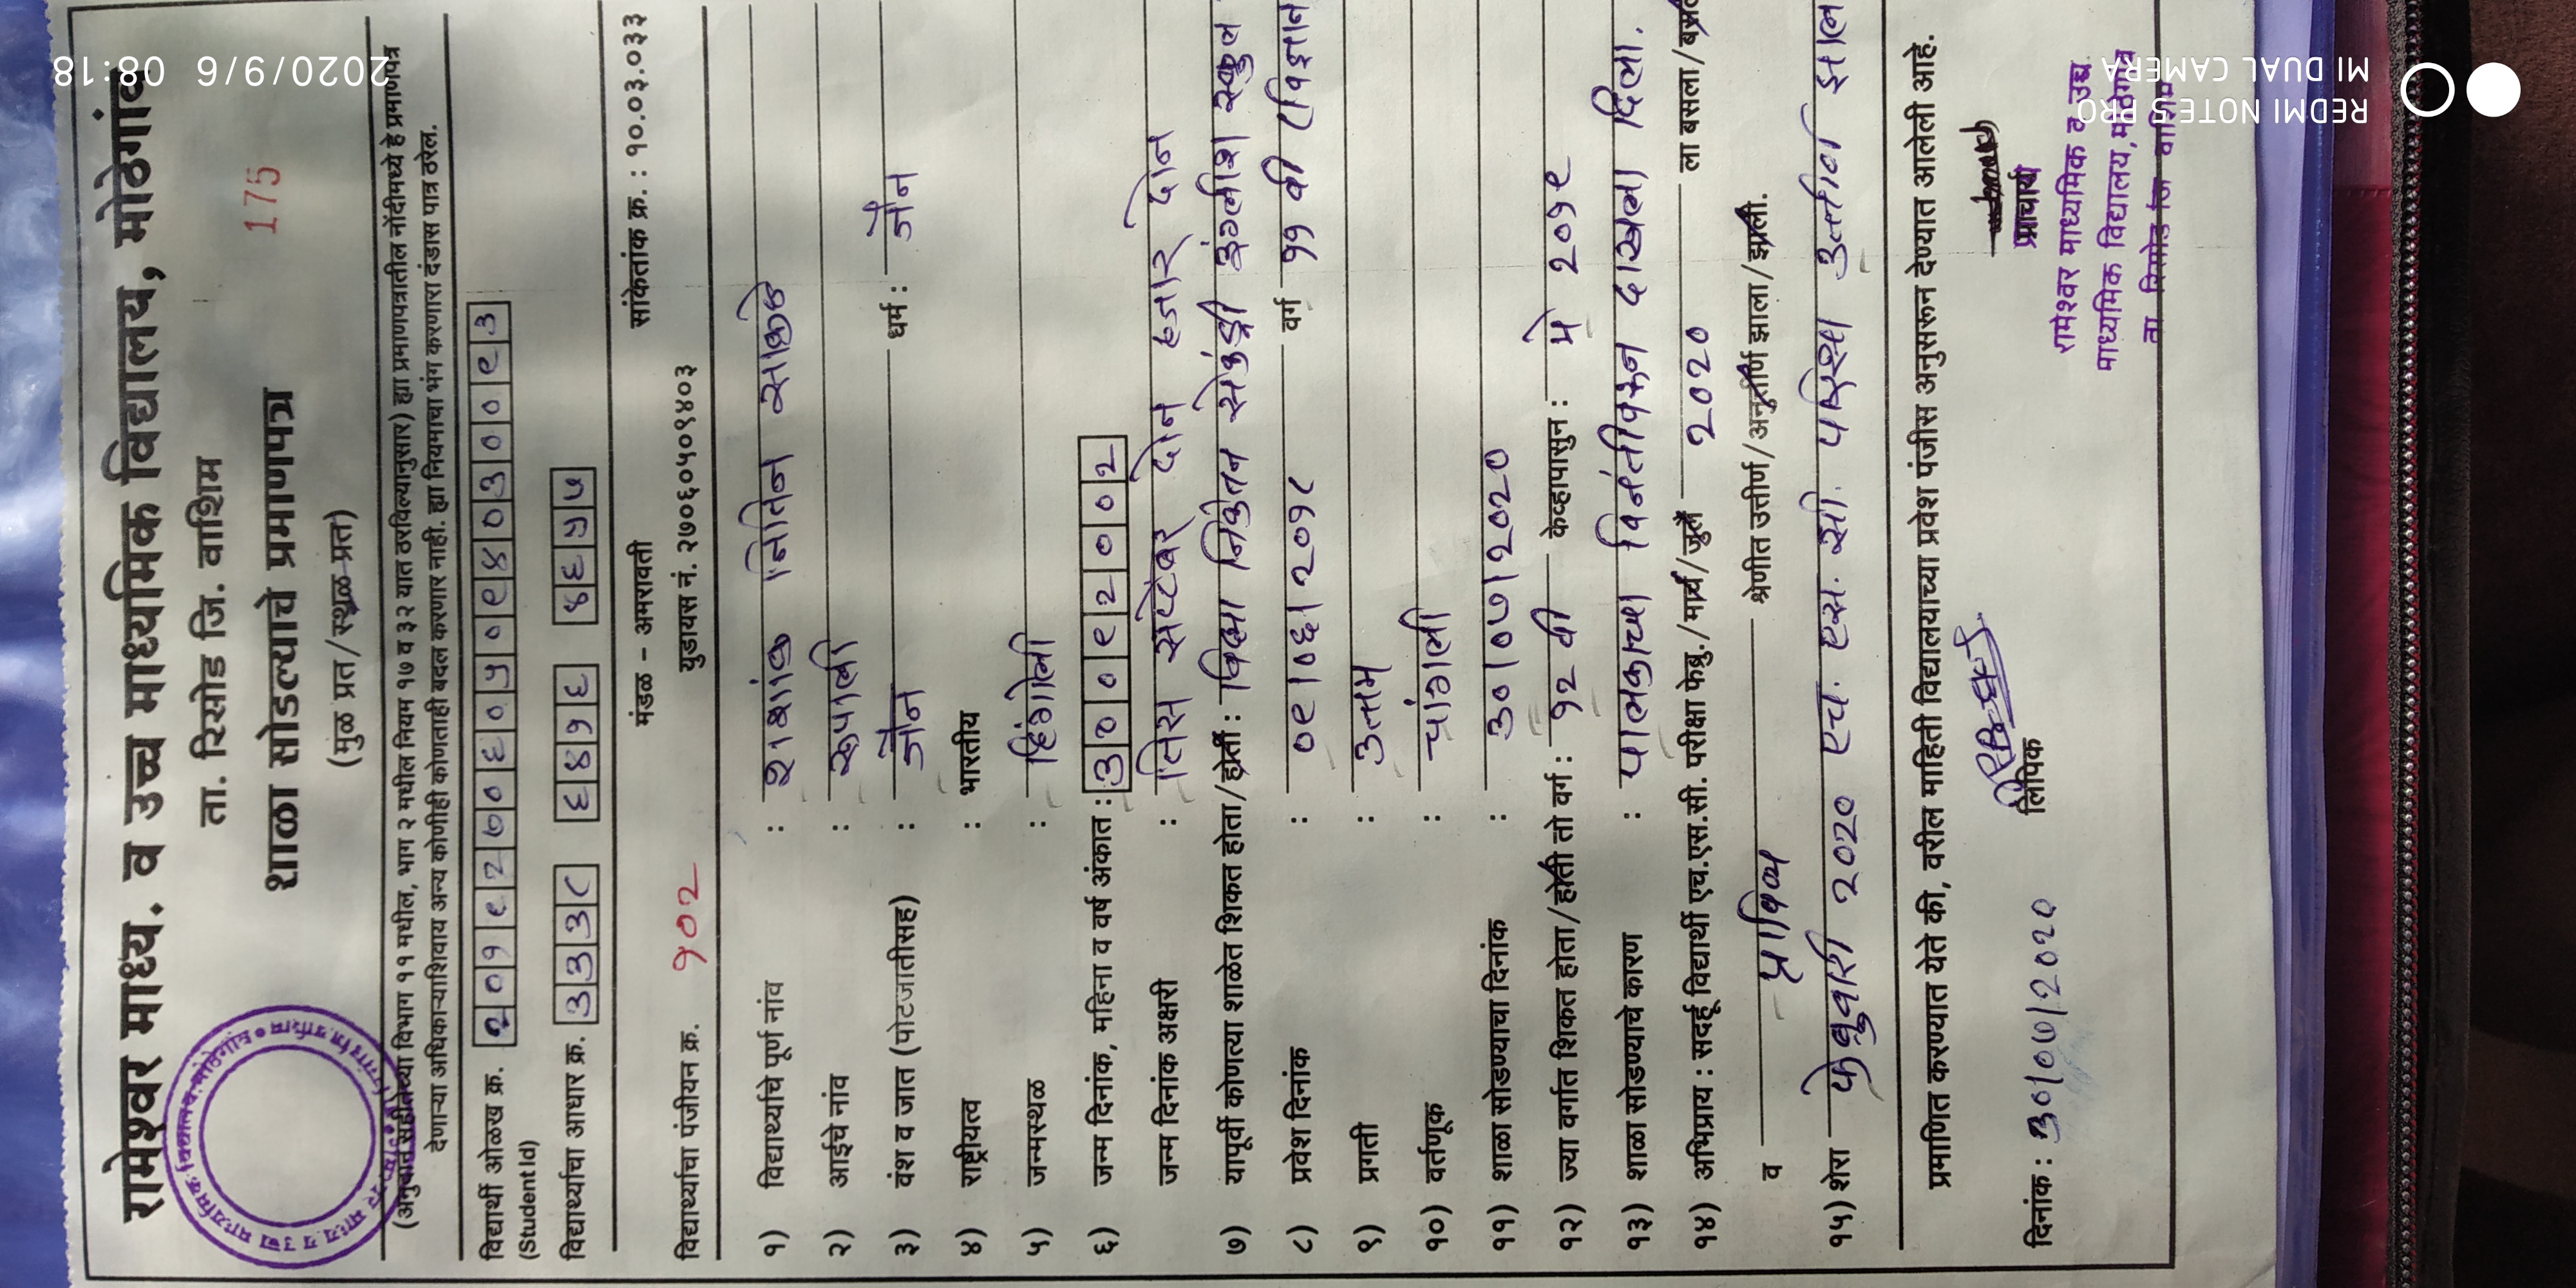 रामेश्वर माध्य. व उच्च माध्यमिक विद्यालय, मोठेगांव
ता. रिसोड जि. वाशिम
175
शाळा सोडल्याचे प्रमाणपत्र
(मुळ प्रत/स्थळ प्रत)
(अनुदान संहितेच्या विभाग ११ मधील, भाग २ मधील नियम १७ व ३२ यात ठरविल्यानुसार) ह्या प्रमाणपत्रातील नोंदीमध्ये हे प्रमाणपत्र
देणाऱ्या अधिकाऱ्याशिवाय अन्य कोणीही कोणताही बदल करणार नाही. ह्या नियमाचा भंग करणारा दंडास पात्र ठरेल.
विद्यार्थी ओळख क्र. २०१९२७०६०५०९४०३००९३
(Student Id)
विद्यार्थ्याचा आधार क्र. ३३३८ ६४१६ ४६५५
मंडळ - अमरावती सांकेतांक क्र. : १०.०३.०३३
विद्यार्थ्याचा पंजीयन क्र. १०२ युडायस नं. २७०६०५०९४०३
१) विद्यार्थ्याचे पूर्ण नांव : शशांक नितिन साकळे
२) आईचे नांव : रूपाली
३) वंश व जात (पोटजातीसह) : जैन धर्म : जैन
४) राष्ट्रीयत्व : भारतीय
५) जन्मस्थळ : हिंगोली
६) जन्म दिनांक, महिना व वर्ष अंकात : ३००९२००२
जन्म दिनांक अक्षरी : तिस सप्टेंबर दोन हजार दोन
७) यापूर्वी कोणत्या शाळेत शिकत होता/होती : विद्या निकेतन सेकंडरी इंग्लीश स्कुल
८) प्रवेश दिनांक : ०९/०६/२०१८ वर्ग ११ वी (विज्ञान
९) प्रगती : उत्तम
१०) वर्तणूक : चांगली
११) शाळा सोडण्याचा दिनांक : ३०/०७/२०२०
१२) ज्या वर्गात शिकत होता/होती तो वर्ग : १२ वी केव्हापासुन : मे २०१९
१३) शाळा सोडण्याचे कारण : पालकाच्या विनंतीवरून दाखला दिला.
१४) अभिप्राय : सदर्हू विद्यार्थी एच.एस.सी. परीक्षा फेब्रु./मार्च/जुलै २०२० ला बसला/बसली
व प्राविण्य श्रेणीत उत्तीर्ण/अनुत्तीर्ण झाला/झाली.
१५) शेरा फेब्रुवारी २०२० एच. एस. सी. परिक्षा उत्तीर्ण झाला
प्रमाणित करण्यात येते की, वरील माहिती विद्यालयाच्या प्रवेश पंजीस अनुसरून देण्यात आलेली आहे.
दिनांक : ३०/०७/२०२० लिपिक प्राचार्य
रामेश्वर माध्यमिक व उच्च
माध्यमिक विद्यालय, मोठेगांव
ता. रिसोड जि. वाशिम
2020/9/6 08:18
REDMI NOTE 5 PRO
MI DUAL CAMERA